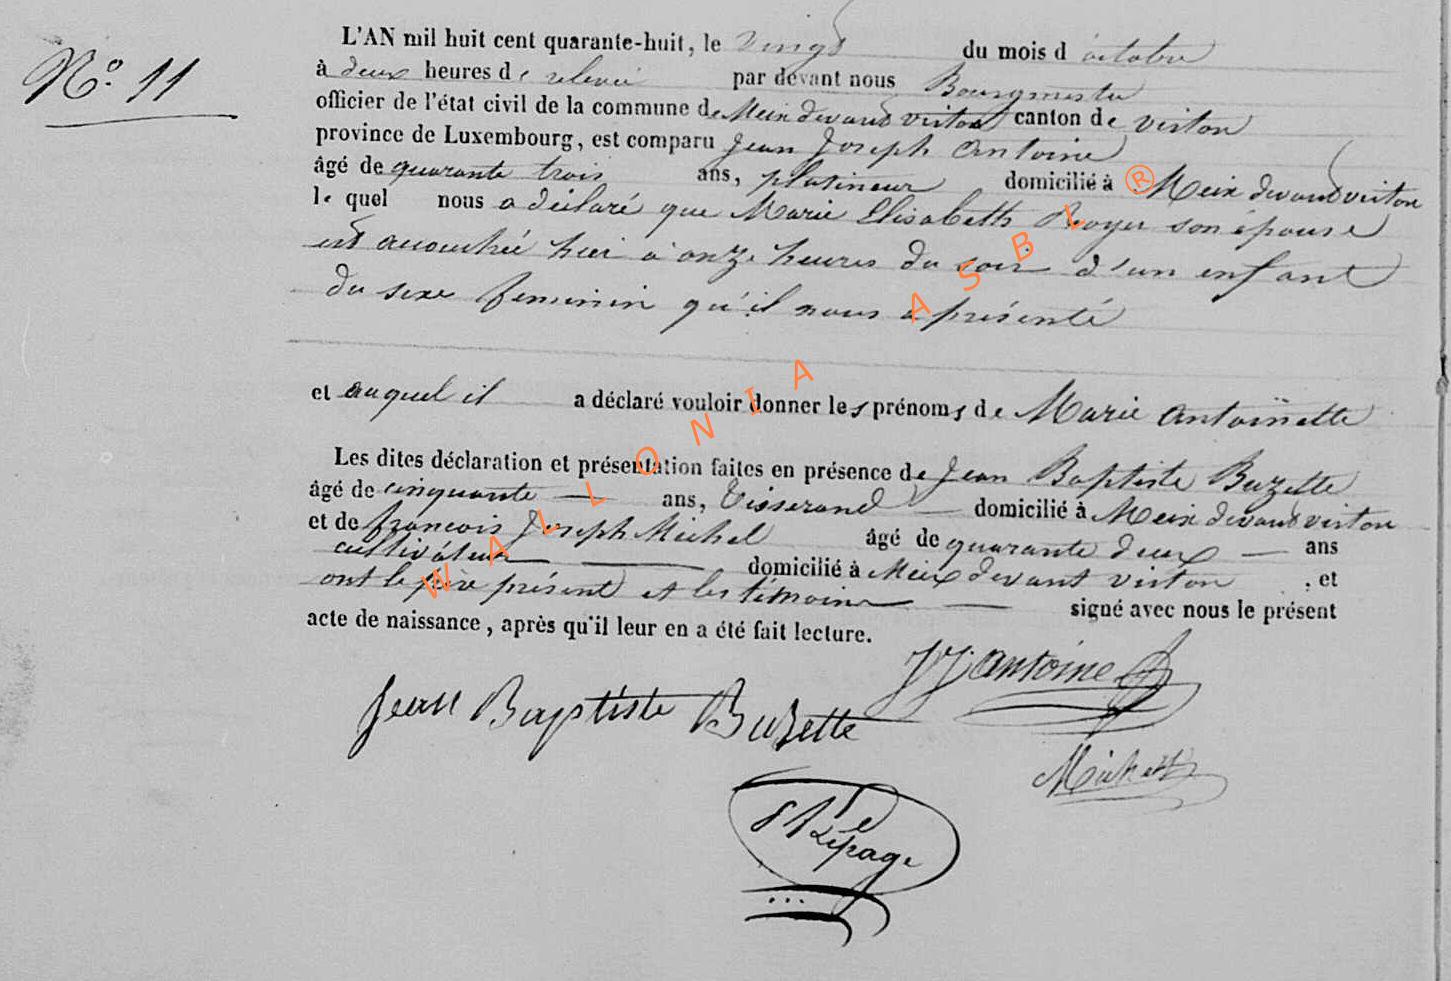 N.º 11
L'AN mil huit cent quarante-huit, le vingt du mois d'octobre
à deux heures de relevée par devant nous Bourgmestre
officier de l'état civil de la commune de Meix devant virton canton de virton
province de Luxembourg, est comparu Jean Joseph Antoine
âgé de quarante trois ans, platineur domicilié à Meix devant virton
le quel nous a déclaré que Marie Elisabeth Royer son épouse
est accouchée hier à onze heures du soir d'un enfant
du sexe feminin qu'il nous a présenté
et auquel il a déclaré vouloir donner les prénoms de Marie Antoinette
Les dites déclaration et présentation faites en présence de Jean Baptiste Buzette
âgé de cinquante ans, Tisserand domicilié à Meix devant virton
et de françois Joseph Michel âgé de quarante deux ans
cultivateur domicilié à Meix devant virton , et
ont le père présent et les témoins signé avec nous le présent
acte de naissance, après qu'il leur en a été fait lecture.
JJ. Antoine
Jean Baptiste Buzette
Michel
Lepage
WALLONIA ASBL ®